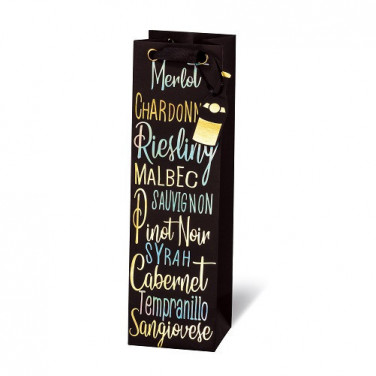 Merlot
CHARDONN
Riesling
MALBEC
SAUVIGNON
Pinot Noir
SYRAH
Cabernet
Tempranillo
Sangiovese